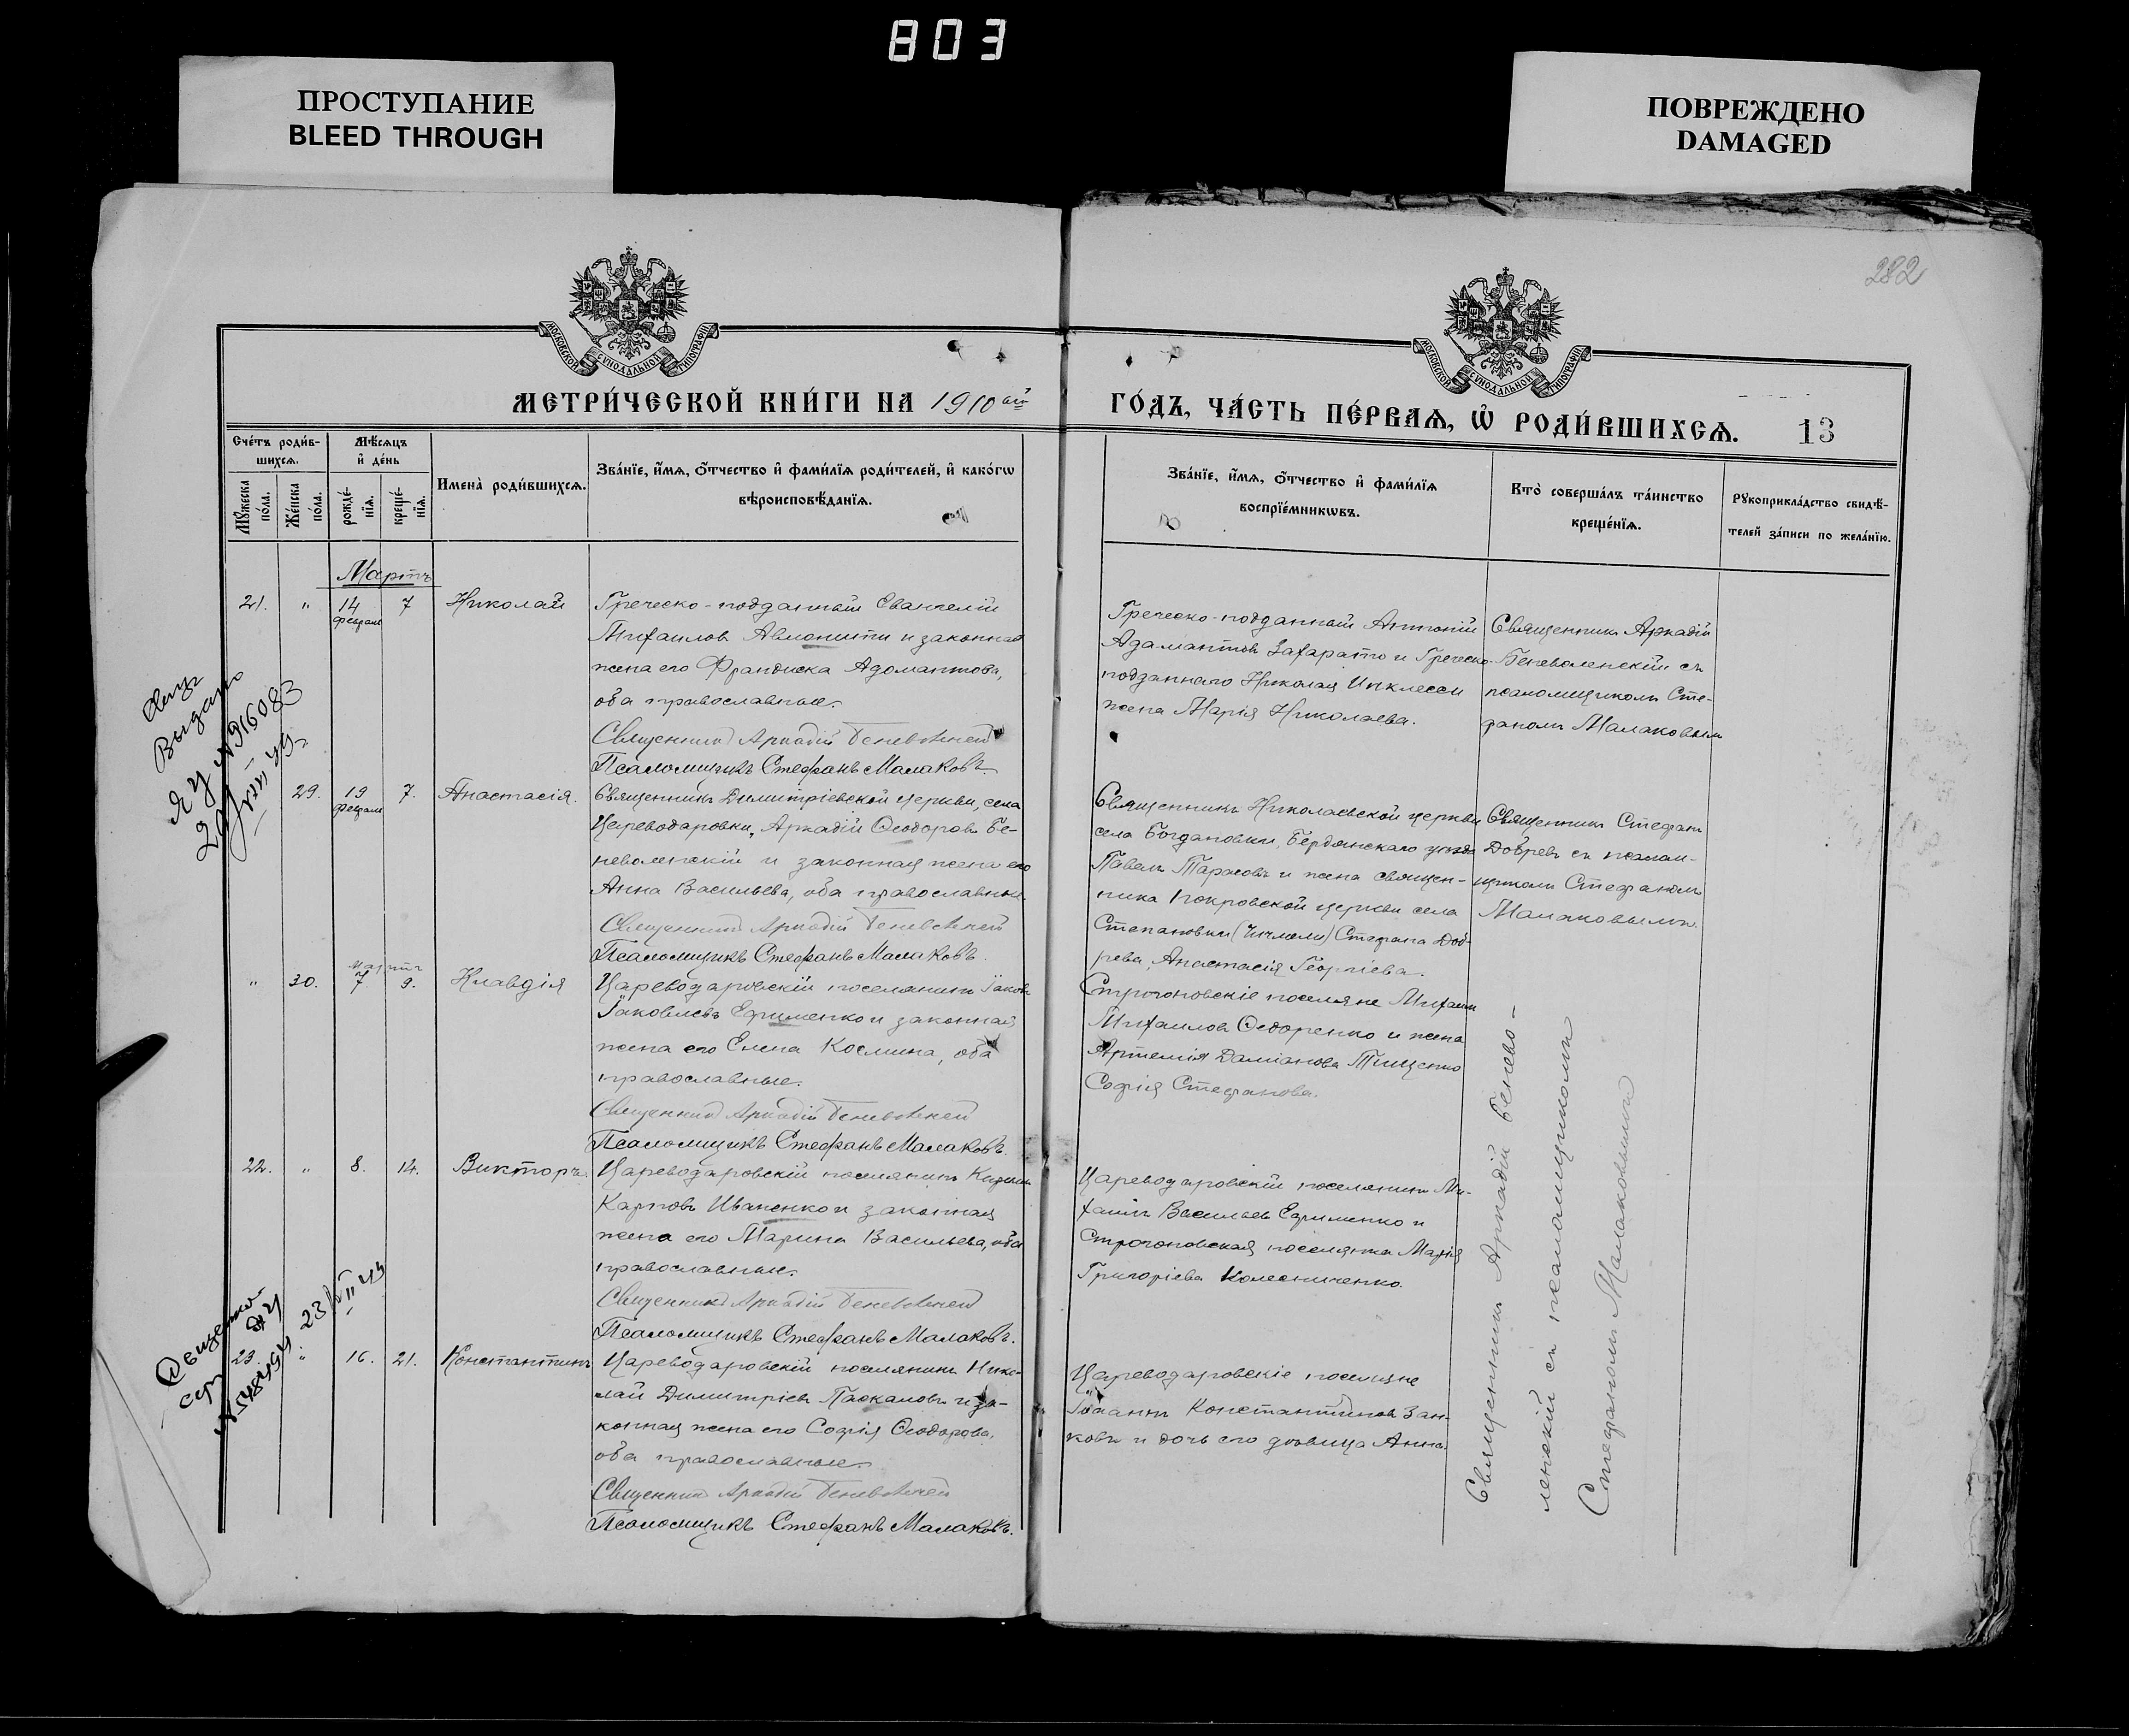 803
ПРОСТУПАНИЕ
BLEED THROUGH
ПОВРЕЖДЕНО
DAMAGED
282
МОСКОВСКОЙ СѴНОДАЛЬНОЙ ТИПОГРАФІИ
МОСКОВСКОЙ СѴНОДАЛЬНОЙ ТИПОГРАФІИ
МЕТРИ́ЧЕСКОЙ КНИ́ГИ НА 1910 ый
ГО́ДЪ, ЧА́СТЬ ПЕ́РВАѦ, Ѽ РОДИ́ВШИХСѦ. 13
Сче́тъ роди́в-
шихсѧ.
Мѣ́сѧцъ
и҆ де́нь
Мꙋ́жеска по́ла.
Же́нска по́ла.
рожде́-нїѧ.
креще́-нїѧ.
Имена̀ роди́вшихсѧ.
Зва́нїе, и҆́мѧ, ѻ҆́тчество и҆ фами́лїѧ роди́телей, и҆ како́гѡ
вѣроисповѣ́данїѧ.
Зва́нїе, и҆́мѧ, ѻ҆́тчество и҆ фами́лїѧ
воспрїе́мникѡвъ.
Кто̀ соверша́лъ та́инство
креще́нїѧ.
Рꙋкоприкла́дство свидѣ́-
телей за́писи по жела́нїю.
Мартъ
21. " 14 февраля 7 Николай
Греческо-подданный Евангелій
Михаиловъ Авмонити и законная
жена его Франциска Адамантова,
оба православные.
Священникъ Аркадій Беневоленскій
Псаломщикъ Стефанъ Малаковъ.
Греческо-подданный Антоній
Адамантовъ Зафарато и Греческо-
подданнаго Николая Инклесси
жена Марія Николаева.
Священникъ Аркадій
Беневоленскій съ
псаломщикомъ Сте-
фаномъ Малаковымъ
Выдано
ЯУ № 916083
29. 19 февраля 7. Анастасія.
Священникъ Димитріевской церкви, села
Цареводаровки, Аркадій Ѳеодоровъ Бе-
неволенскій и законная жена его
Анна Васильева, оба православные.
Священникъ Аркадій Беневоленскій
Псаломщикъ Стефанъ Малаковъ.
Священникъ Николаевской церкви
села Богдановки, Бердянскаго уѣзда
Павелъ Тарасовъ и жена священ-
ника Покровской церкви села
Степановки (Чичмели) Стефана Доб-
рева, Анастасія Георгіева.
Священникъ Стефанъ
Добревъ съ псалом-
щикомъ Стефаномъ
Малаковымъ.
" 30. мартъ 7 9. Клавдія
Цареводаровскій поселянинъ Іаковъ
Іаковлевъ Ефименко и законная
жена его Елена Космина, оба
православные.
Священникъ Аркадій Беневоленскій
Псаломщикъ Стефанъ Малаковъ.
Строгоновскіе поселяне Михаилъ
Михаиловъ Ѳедоренко и жена
Артемія Даміанова Тищенко
Софія Стефанова.
22. " 8. 14. Викторъ.
Цареводаровскій поселянинъ
Карповъ Иваненко и законная
жена его Марина Васильева, оба
православные.
Священникъ Аркадій Беневоленскій
Псаломщикъ Стефанъ Малаковъ.
Цареводаровскій поселянинъ Ми-
хаилъ Васильевъ Ефименко и
Строгоновская поселянка Марія
Григоріева Колесниченко.
23. " 16. 21. Константинъ
Цареводаровскій поселянинъ Нико-
лай Димитріевъ Паскаловъ и за-
конная жена его Софія Ѳеодорова,
оба православные.
Священникъ Аркадій Беневоленскій
Псаломщикъ Стефанъ Малаковъ.
Цареводаровскіе поселяне
Іоаннъ Константиновъ Зан-
ковъ и дочь его дѣвица Анна.
Священникъ Аркадій Бенево-
ленскій съ псаломщикомъ
Стефаномъ Малаковымъ